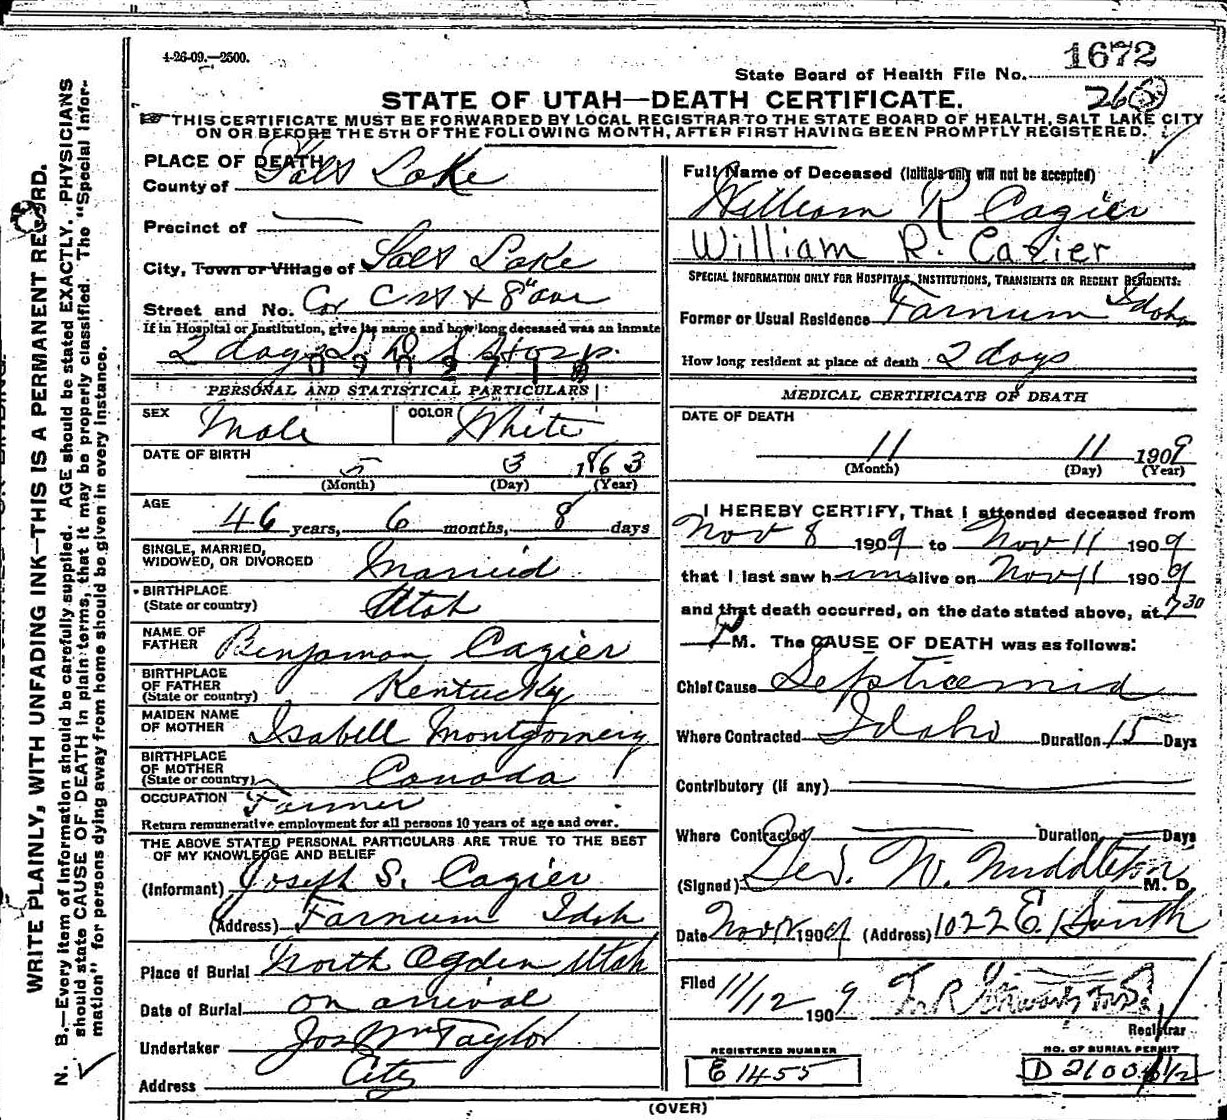 4-26-09.—2500.
1672
State Board of Health File No.
STATE OF UTAH—DEATH CERTIFICATE.
THIS CERTIFICATE MUST BE FORWARDED BY LOCAL REGISTRAR TO THE STATE BOARD OF HEALTH, SALT LAKE CITY
ON OR BEFORE THE 5TH OF THE FOLLOWING MONTH, AFTER FIRST HAVING BEEN PROMPTLY REGISTERED.
WRITE PLAINLY, WITH UNFADING INK—THIS IS A PERMANENT RECORD.
N. B.—Every item of information should be carefully supplied. AGE should be stated EXACTLY. PHYSICIANS
should state CAUSE OF DEATH in plain terms, that it may be properly classified. The "Special Infor-
mation" for persons dying away from home should be given in every instance.
PLACE OF DEATH
County of Salt Lake
Precinct of
City, Town or Village of Salt Lake
Street and No. Cor C St & 8" ave
If in Hospital or Institution, give its name and how long deceased was an inmate
2 days L. D. S Hosp.
PERSONAL AND STATISTICAL PARTICULARS
SEX Male COLOR White
DATE OF BIRTH 5 3 1863
(Month) (Day) (Year)
AGE 46 years, 6 months, 8 days
SINGLE, MARRIED,
WIDOWED, OR DIVORCED Married
BIRTHPLACE
(State or country) Utah
NAME OF
FATHER Benjaman Cazier
BIRTHPLACE
OF FATHER
(State or country) Kentucky
MAIDEN NAME
OF MOTHER Isabell Montgomery
BIRTHPLACE
OF MOTHER
(State or country) Canada
OCCUPATION Farmer
Return remunerative employment for all persons 10 years of age and over.
THE ABOVE STATED PERSONAL PARTICULARS ARE TRUE TO THE BEST
OF MY KNOWLEDGE AND BELIEF
(Informant) Joseph S. Cazier
(Address) Farnum Idah
Place of Burial North Ogden Utah
Date of Burial on arrival
Undertaker Jos Wm Taylor
Address City
Full Name of Deceased (Initials only will not be accepted)
William R Cazier
William R. Cazier
SPECIAL INFORMATION ONLY FOR HOSPITALS, INSTITUTIONS, TRANSIENTS OR RECENT RESIDENTS:
Former or Usual Residence Farnum Idaho
How long resident at place of death 2 days
MEDICAL CERTIFICATE OF DEATH
DATE OF DEATH
11 11 1909
(Month) (Day) (Year)
I HEREBY CERTIFY, That I attended deceased from
Nov 8 1909 to Nov 11 1909
that I last saw him alive on Nov 11 1909
and that death occurred, on the date stated above, at 7 30
P M. The CAUSE OF DEATH was as follows:
Chief Cause Septicemia
Where Contracted Idaho Duration 15 Days
Contributory (if any)
Where Contracted Duration Days
(Signed) Geo. W. Middleton M. D.
Date Nov 12 1909 (Address) 1022 E. 1 South
Filed 11/12 1909
Registrar
REGISTERED NUMBER
E 1455
NO. OF BURIAL PERMIT
(OVER)